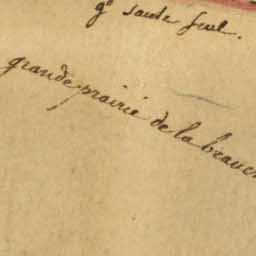 g.º saute seul.
grande prairie de la beauce